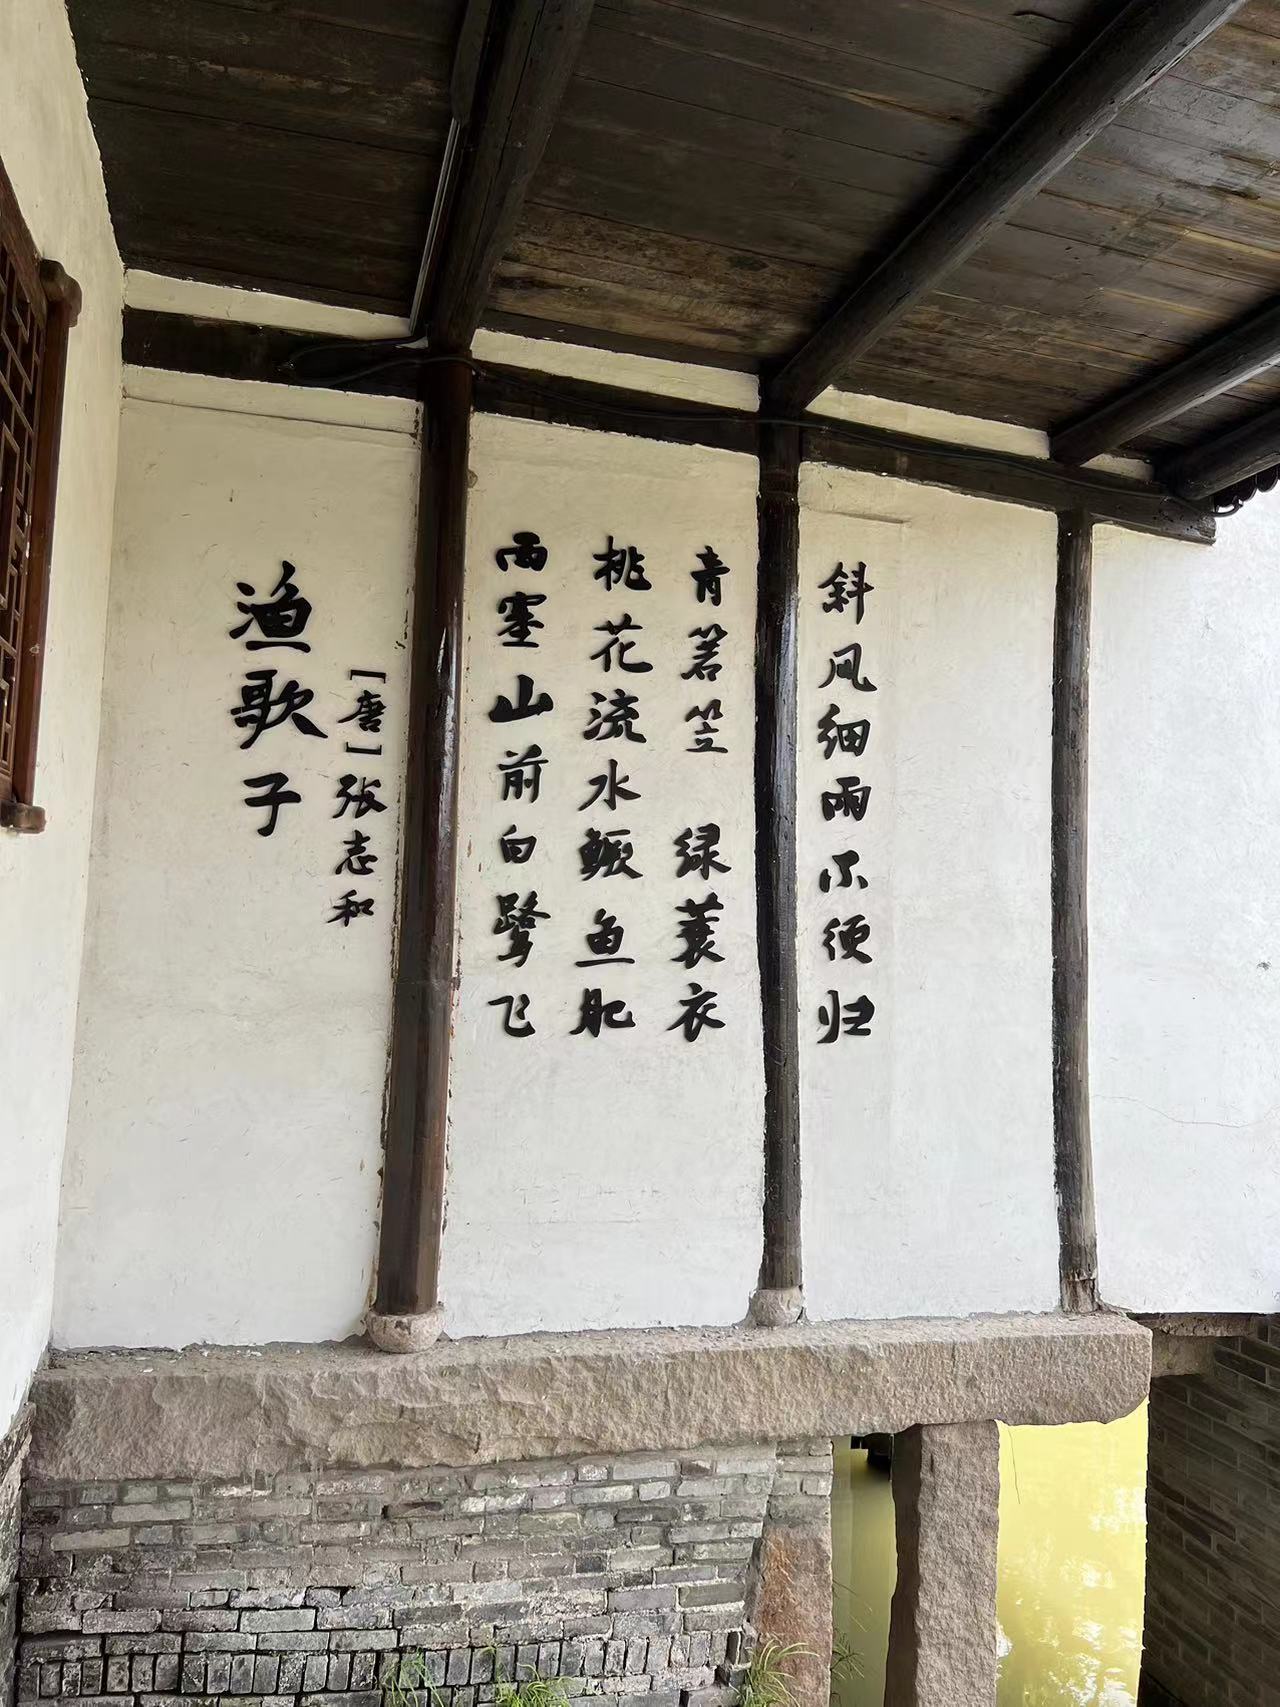 渔歌子
[唐]张志和
西塞山前白鹭飞
桃花流水鳜鱼肥
青箬笠 绿蓑衣
斜风细雨不须归